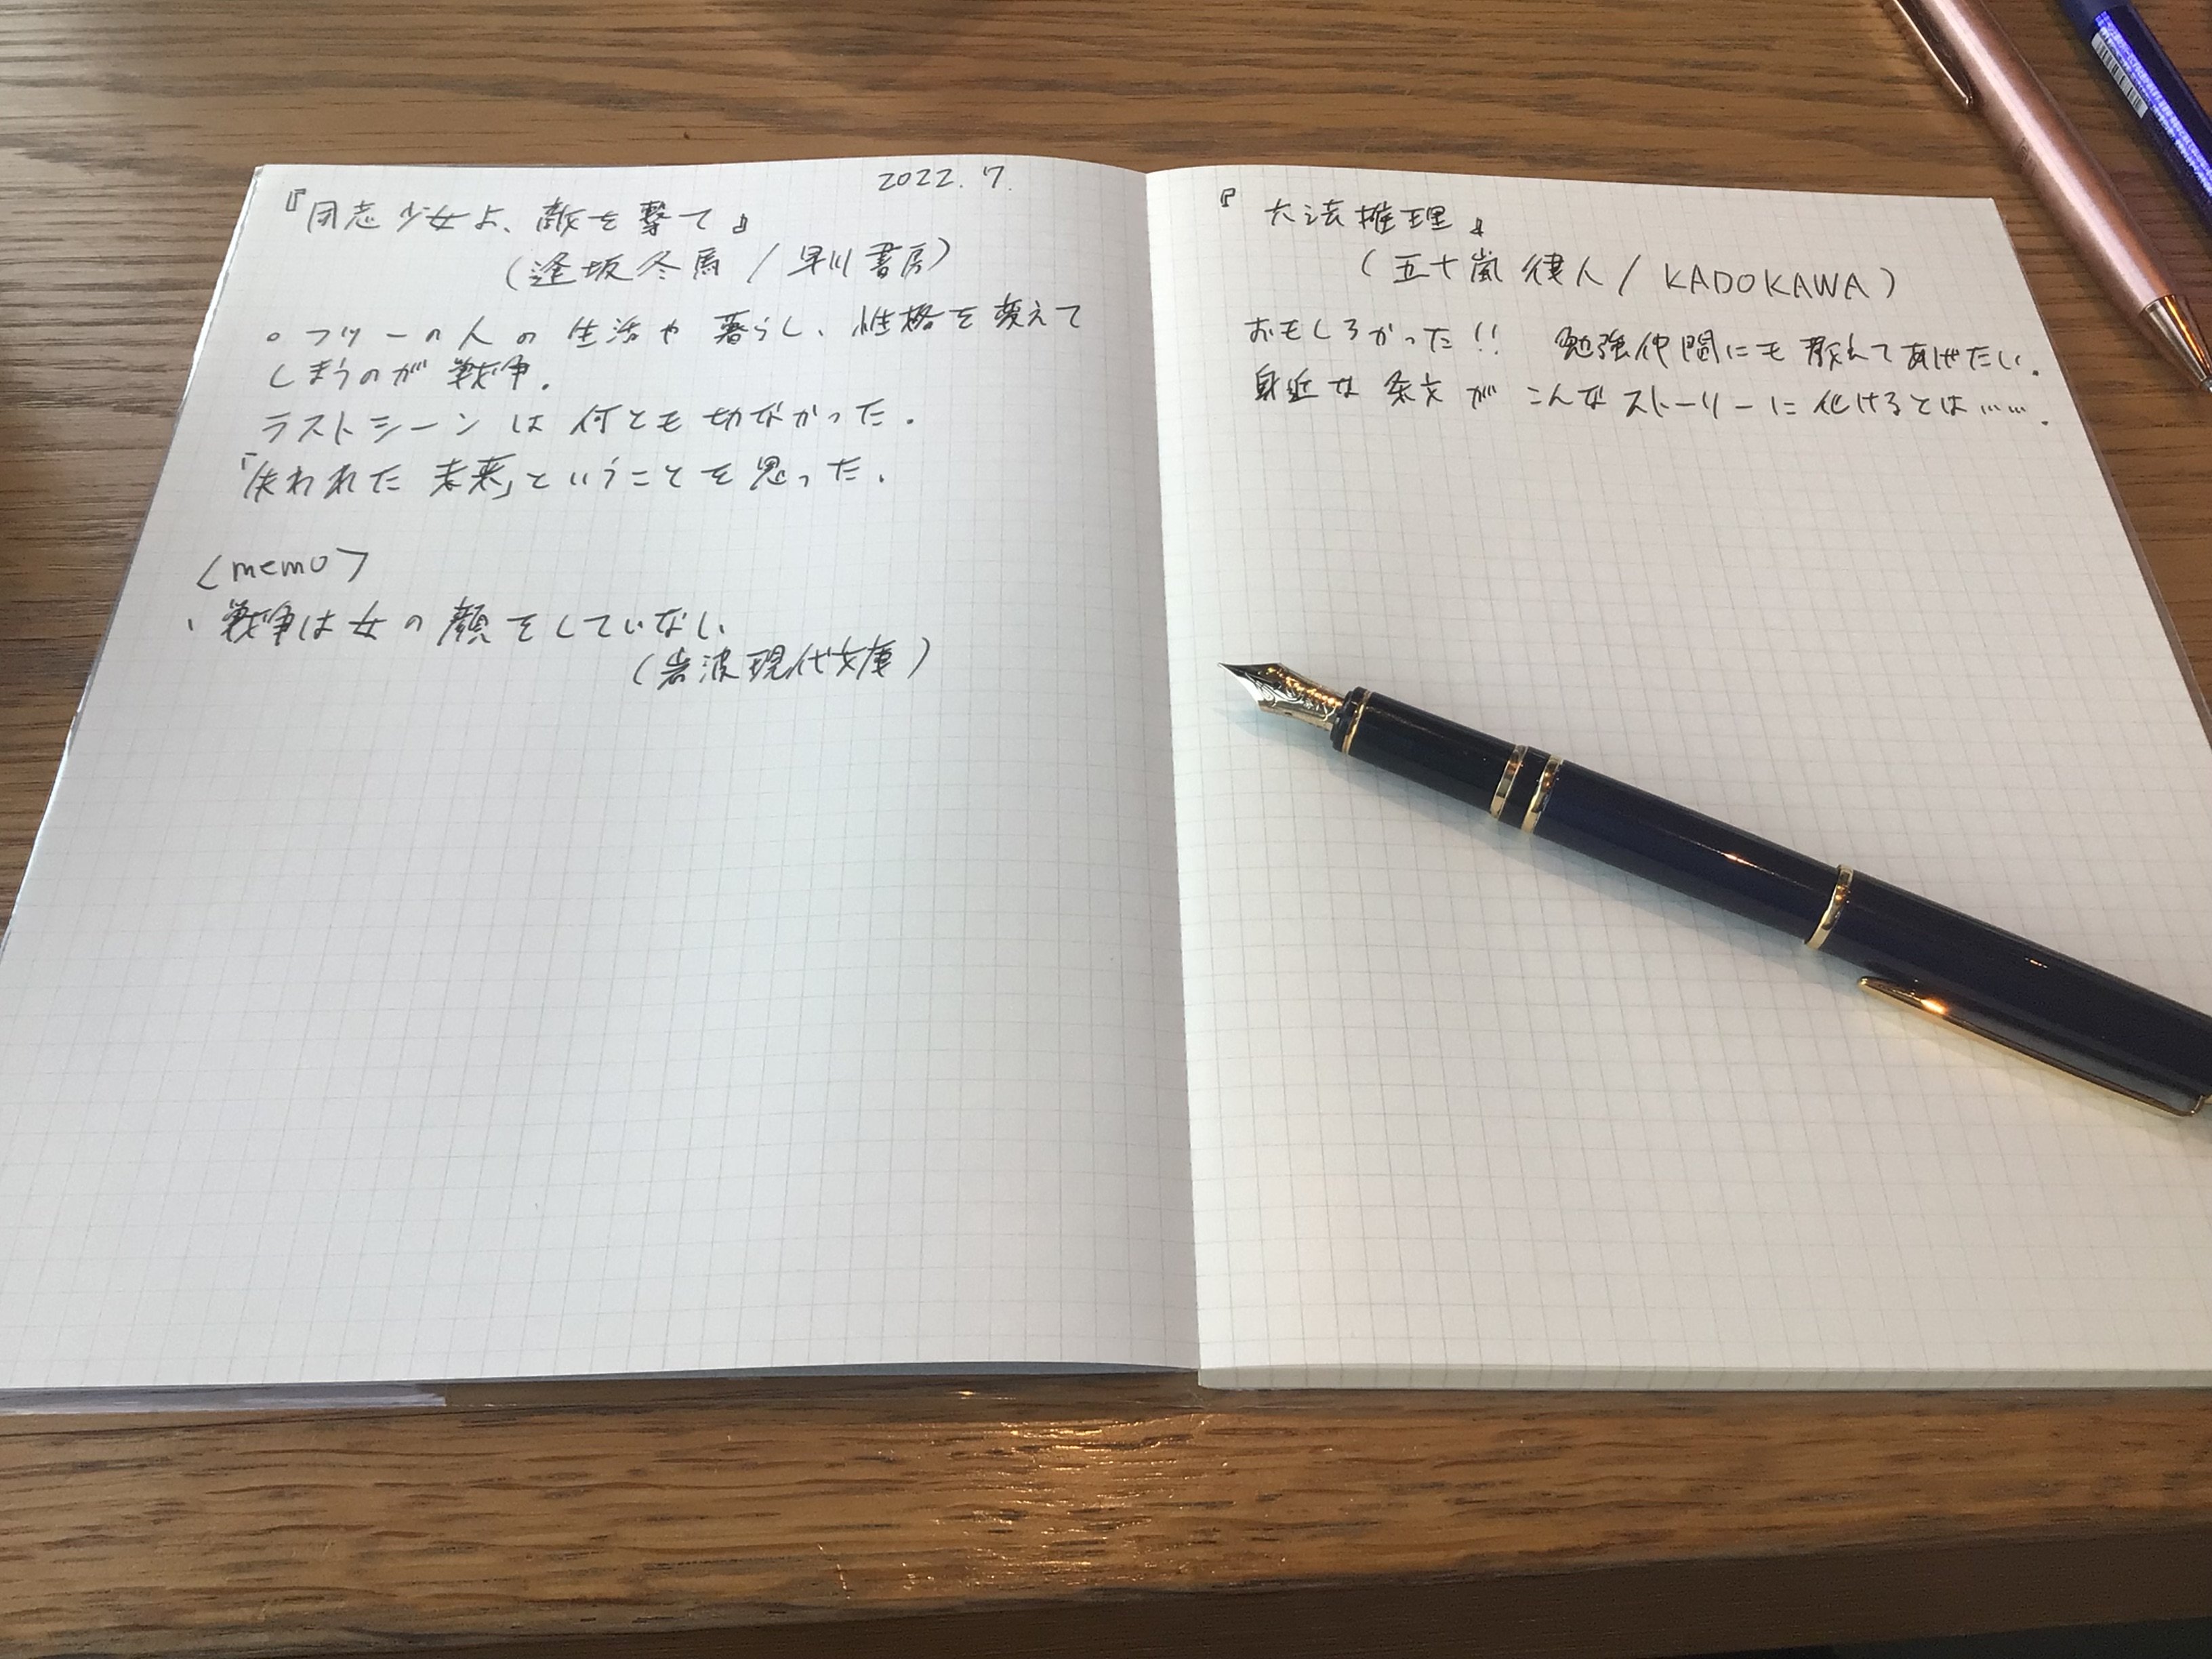 2022.7.
『同志少女よ、敵を撃て』
(逢坂冬馬/早川書房)
。フツーの人の生活や暮らし、性格を変えて
しまうのが戦争.
ラストシーンは何とも切なかった.
「失われた未来」ということを思った.
<memo>
・戦争は女の顔をしていない
(岩波現代文庫)
『六法推理』
(五十嵐律人/KADOKAWA)
おもしろかった!! 勉強仲間にも教えてあげたい.
身近な条文がこんなストーリーに化けるとは…….